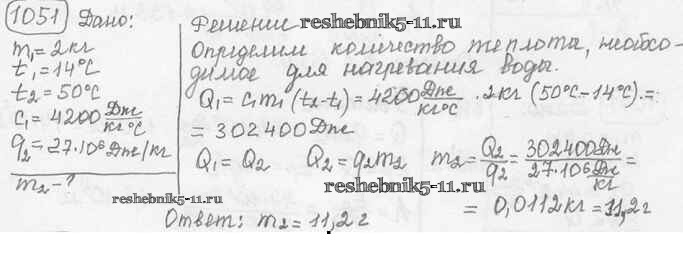 1051 Дано:
m₁=2кг
t₁=14°C
t₂=50°C
c₁=4200 Дж/кг°C
q₂=27·10⁶ Дж/кг
m₂-?
Решение
reshebnik5-11.ru
Определим количество теплота, необхо-
димое для нагревания воды.
Q₁=c₁m₁(t₂-t₁)=4200 Дж/кг°C · 2кг (50°C-14°C)=
=302400Дж
Q₁=Q₂ Q₂=q₂m₂ m₂=Q₂/q₂=302400Дж/27·10⁶ Дж/кг=
=0,0112кг=11,2г
reshebnik5-11.ru
Ответ: m₂=11,2г